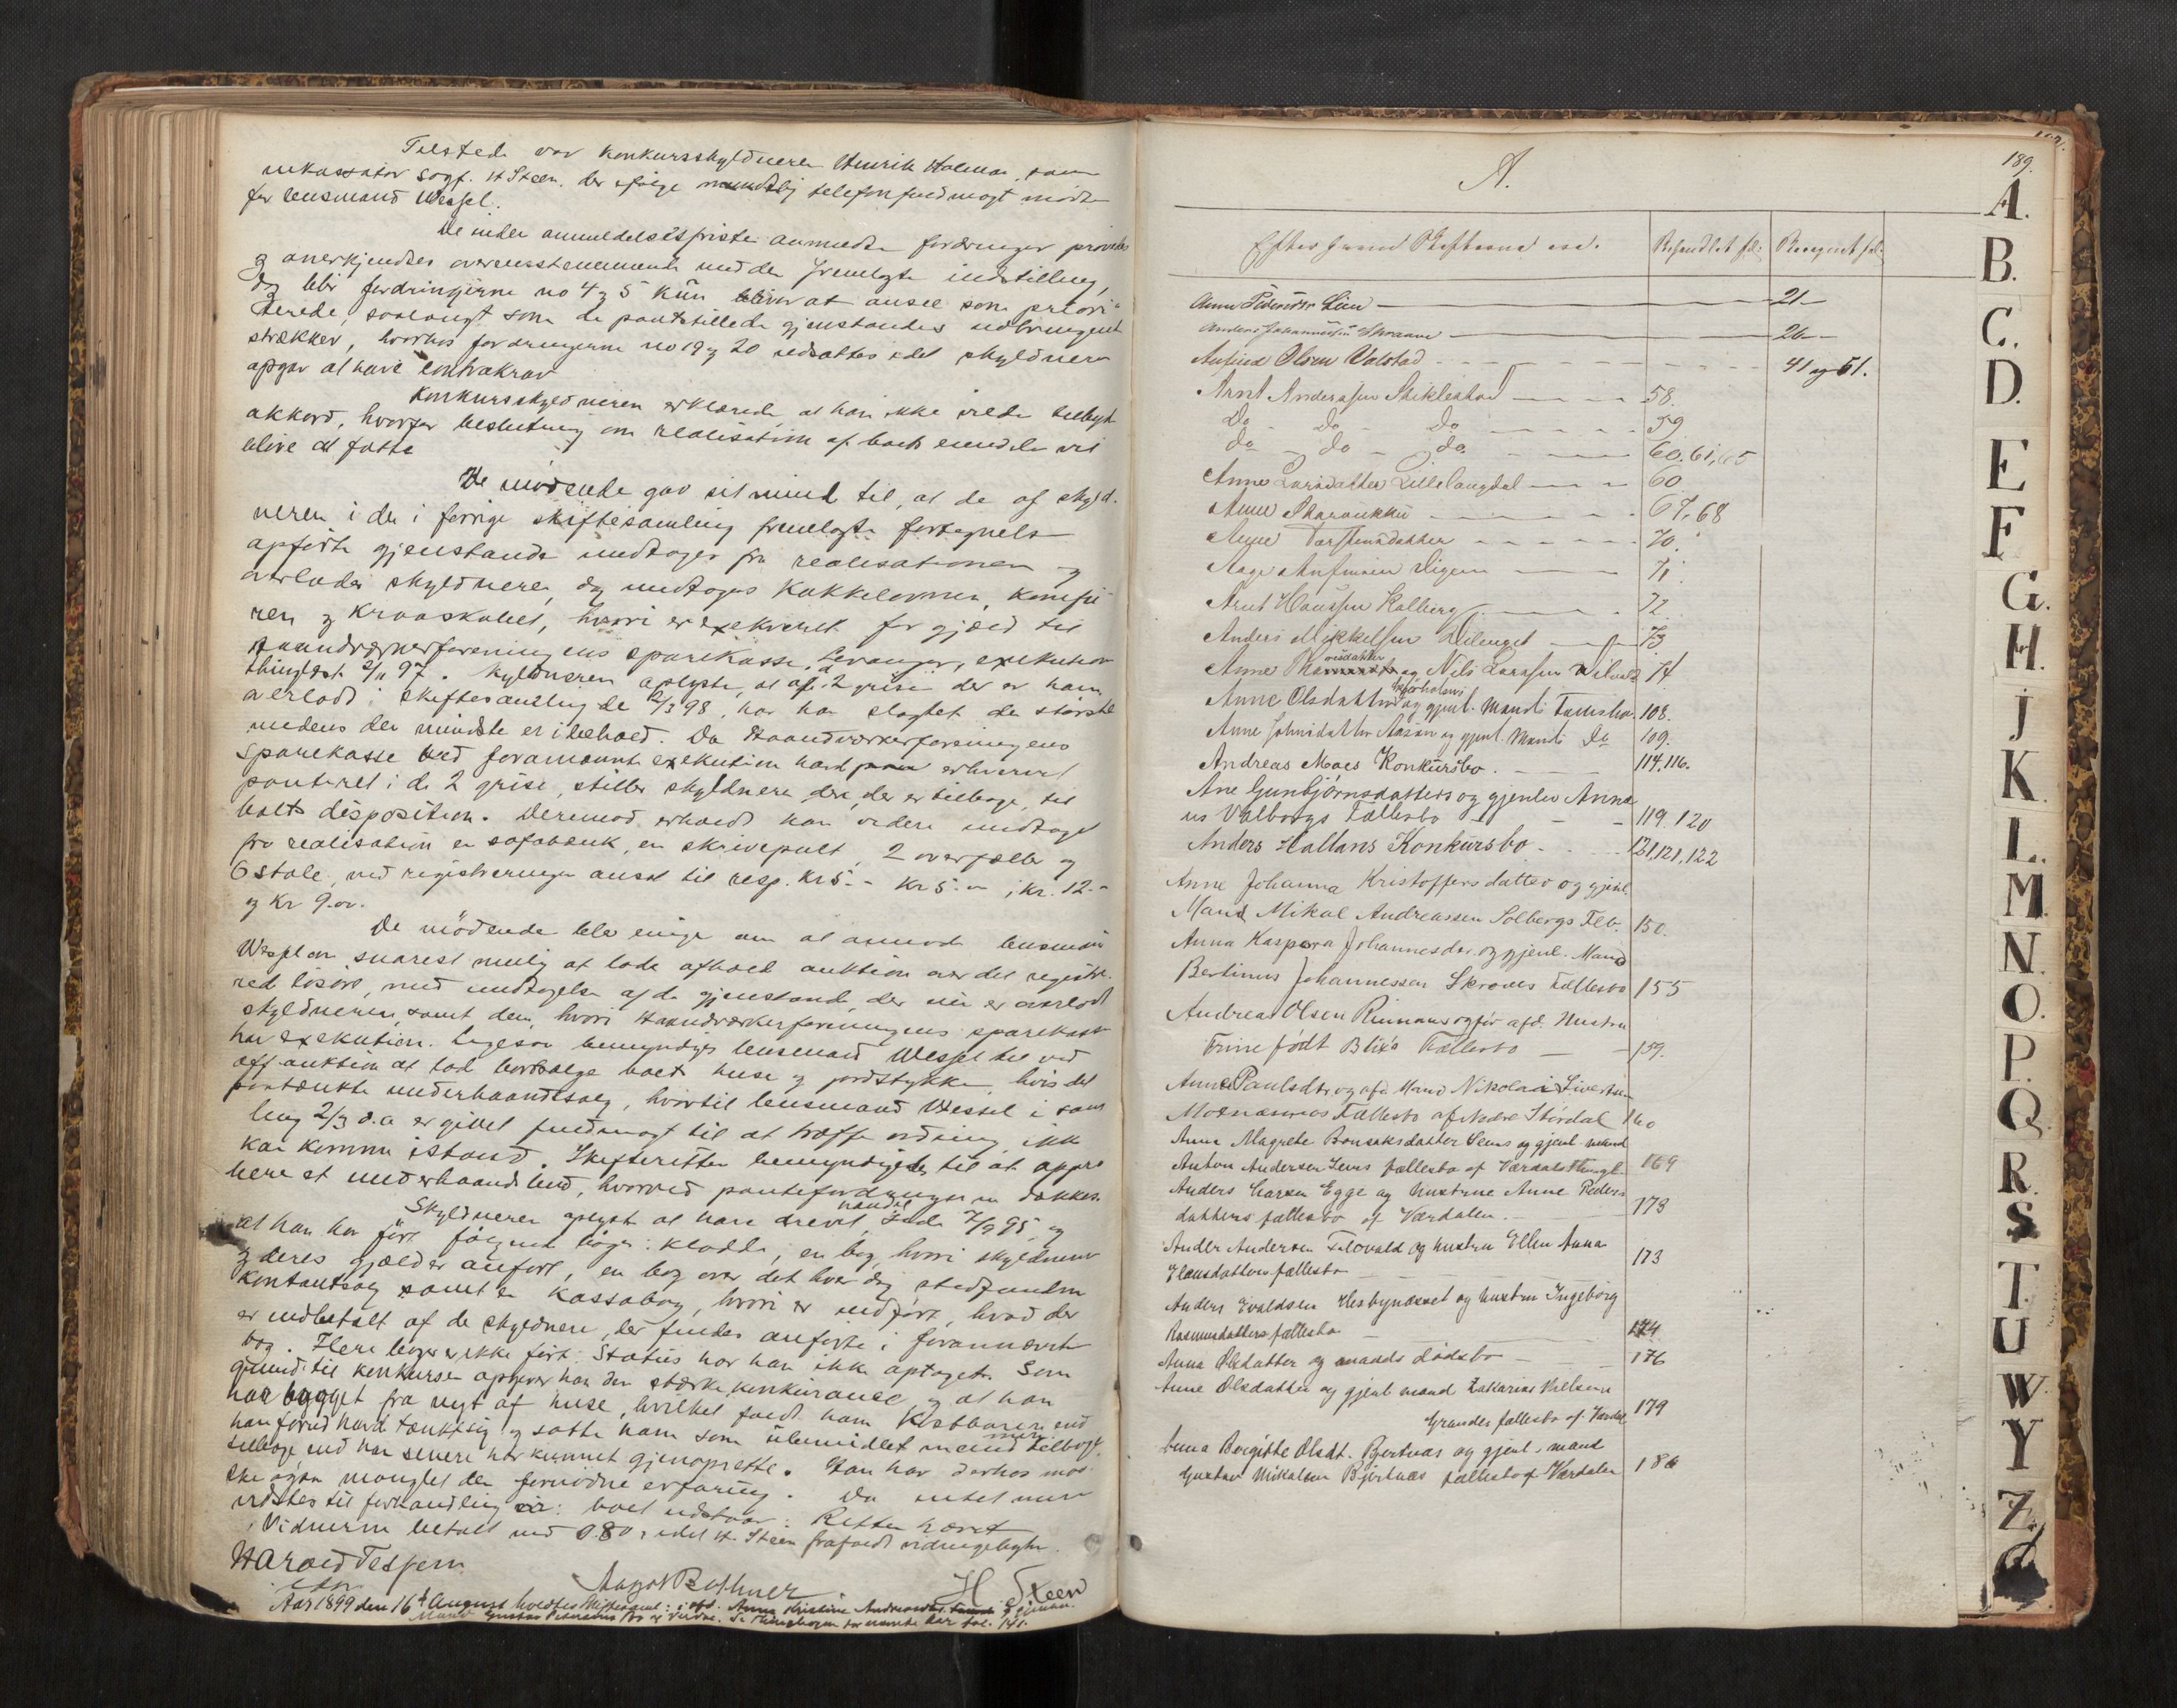 Tilstede var konkursskyldneren Henrik Holmen, som
inkassator sagf. H Steen, der ifølge mundtlig telefonfuldmagt mødte
for lensmand Wessel.
De inden anmeldelsesfristen anmeldte fordringer prøvedes
og anerkjendtes overensstemmende med den fremlagte indstilling,
dog blir fordringerne no 4 og 5 kun at ansee som priori-
terede, saalangt som de pantstillede gjenstandes udbringende
strækker, hvorhos fordringerne no 19 og 20 udsattes idet skyldneren
opgav at have contrakrav
Konkursskyldneren erklærede, at han ikke vilde tilbyde
akkord, hvorfor beslutning om realisation af boets eiendele vil
blive at fatte
De mødende gav sit minde til, at de af skyld-
neren i den i forrige skiftesamling fremlagte fortegnelse
opførte gjenstande undtages fra realisationen og
overlades skyldneren, dog undtoges Kakkelovnen, komfu-
ren og kraaskabet, hvori er exekveret for gjæld til
Haandværkerforeningens sparekasse, Levanger, exekution
thinglæst 2/11 97. Skyldneren oplyste, at af de 2 grise der er ham
overladt i skiftesamling de 2/3 98, har han slagtet den største
medens den mindste er i behold. Da Haandværkerforeningens
Sparekasse ved foranævnte exekution havde erhvervet
panteret i de 2 grise, stiller skyldneren den, der er tilbage, til
boets disposition. Derimod erholdt han videre undtaget
fra realisation en sofabænk, en skrivepult, 2 overfælle og
6 stole, ved registreringen ansat til resp. Kr 5.- Kr 5.- ; kr. 12.-
og Kr 9.00.
De mødende blev enige om at anmode lensmand
Wessel om snarest mulig at lade afholde auktion over det registre-
rede løsøre, med undtagelse af de gjenstande, der nu er overladt
skyldneren, samt dem, hvori Haandværkerforeningens sparekasse
har exekution. Ligesaa bemyndiges lensmand Wessel til ved
off. auktion at lade bortsælge boets huse og jordstykke, hvis det
paatænkte underhaandssalg, hvortil lensmand Wessel i sam-
ling 2/3 d.a er givet fuldmagt til at træffe ordning, ikke
kan komme istand. Skifteretten bemyndigedes til at appro-
bere et underhaandsbud, hvorved pantefordringerne dækkes.
Skyldneren oplyste at have drevet handel siden 7/9 95, og
at han har ført følgende bøger: kladde, en bog, hvori skyldnere
og deres gjæld er anført, en bog over det hver dag stedfundne
kontantsalg samt en Kassabog, hvori er indført, hvad der
er indbetalt af de skyldnere, der findes anførte i forannævnte
bog. Flere bøger er ikke ført. Status har han ikke optaget. Som
grund til konkursen opgiver han den stærke konkurance og at han
har bygget fra nyt af huse, hvilket faldt ham kostbarere end
han forud havde tænkt sig og satte ham som ubemidlet mand mere tilbage
end han senere har kunnet gjenoprette. Han har derhos maa-
ske ogsaa manglet den fornødne erfaring. Da intet mere
vidstes til forhandling var: boet udstaar: Retten hævet
Vidnerne betalt med 0.80, idet H. Steen frafaldt vidnegebyr.
Harald Jespersen
August Bathner
H Steen
Aar 1899 den 16de August holdtes skiftesaml: i afd. Anna Kristine Andreasdtr. og gjenlev.
Mand Gustav Petersens Bo af Verdal. Se thingbogen for navnte her fol. 141.
189.
A.
Efterfværnd Skiftesnd ese.
Behandlet fol:
Beregnet fol:
Anne Pedersdtr Lien 21
Anders Johannessen Skraave 26
Anfind Olsen Valstad 41 og 51.
Arnt Anderssen Stiklestad 58.
Do Do Do 59
do do do. 60, 61, 65
Anne Larsdatter Lillelangdal 60
Anne Skarounkku 67, 68
Anne Torstensdatter 70
Aage Anfinsen Digern 71
Arnt Hanssen Kolberg 72
Anders Mikkelsen Dilenget 73
Anne Thomasdatter og Nils Larssen 74
Anne Olsdatter og gjenl. Mands Fællesbo. 108.
Anne Johnsdatter Aasen og gjenl. Mands Do 109.
Andreas Moes Konkursbo. 114. 116.
Ane Gunbjørnsdatters og gjenlev Anna
us Valborgs Fællesbo 119. 120
Anders Hallans Konkursbo. 121, 121, 122
Anne Johanna Kristoffersdatter og gjenl.
Mand Mikal Andreassen Solbergs Feb. 150.
Anna Kaspara Johannesdtr. og gjenl. Mand
Bertinus Johannessen Skroves Fællesbo 155
Andreas Olsen Rinnans og før afd. Hustru
Trine født Blix's Fællesbo 159.
Anne Paulsdtr og afd. Mand Nikolai Sivertsen
Moenæsmos Fællesbo af Nedre Stördal 160
Anna Magrete Bonsaksdatter Sems og gjenl. mand
Anton Andersen Sems fællesbo af Værdals thingl 169
Anders Larsen Egge og hustrue Anne Peders
datters fællesbo af Værdalen. 173
Andln Andersen Tilovald og hustru Ellen Anna
Elensdatters fællesbo 173
Anders Evaldsen Hesbynæsset og hustru Ingeborg
Rasmusdatters fællesbo 174
Anna Olsdatter og mands dødsbo 176
Anne Olsdatter og gjenl mand Zakarias Nielsen
Grandes fællesbo af Værdal 179
Anna Birgitte Olsdt. Bjertnæs og gjenl. mand
Gustav Mikalsen Bjertnæs fællesbo af Værdalen 186
A.
B.
C.
D.
E
F
G.
H.
J
K.
L.
M.
N.
O.
P.
Q.
R.
S.
T.
U
W.
Y
Z.